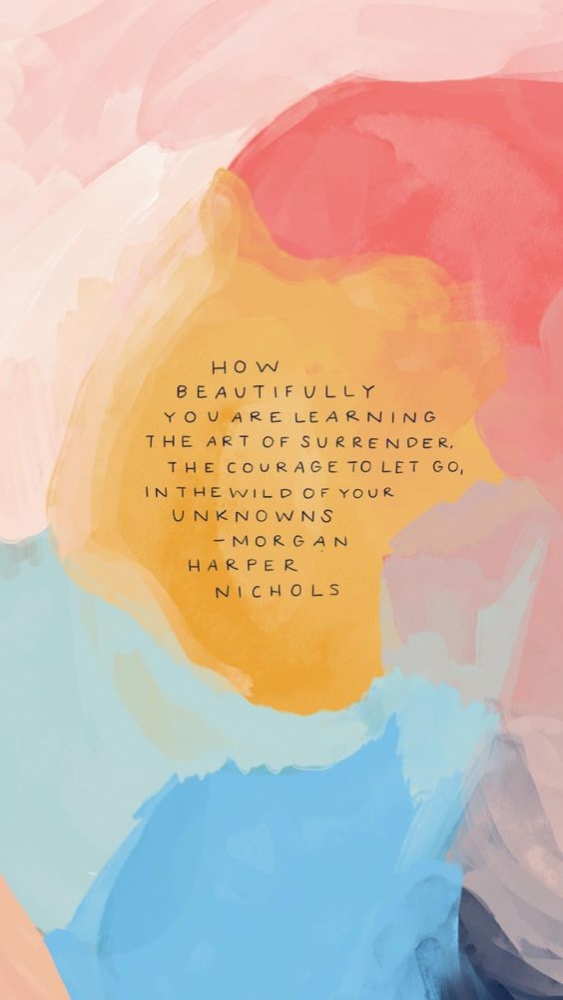 HOW
BEAUTIFULLY
YOU ARE LEARNING
THE ART OF SURRENDER,
THE COURAGE TO LET GO,
IN THE WILD OF YOUR
UNKNOWNS
-MORGAN
HARPER
NICHOLS